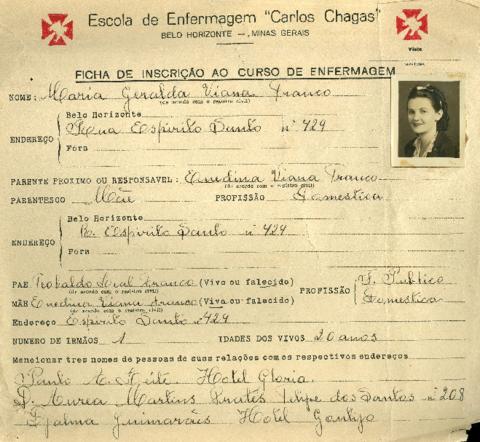 Escola de Enfermagem "Carlos Chagas"
BELO HORIZONTE — MINAS GERAIS
Visto
FICHA DE INSCRIÇÃO AO CURSO DE ENFERMAGEM
NOME: Maria Geralda Viana Franco
(de acordo com o registro civil)
Belo Horizonte
ENDEREÇO Rua Espirito Santo nº 429
Fora
PARENTE PROXIMO OU RESPONSAVEL: Enedina Viana Franco
(de acordo com o registro civil)
PARENTESCO Mãe PROFISSÃO Domestica
Belo Horizonte
ENDEREÇO: R. Espirito Santo nº 429
Fora
PAE Franco (Vivo ou falecido) PROFISSÃO F. Publico
(de acordo com o registro civil)
MÃE Enedina Viana Franco (Viva ou falecida) Domestica
(de acordo com o registro civil)
Endereço Espirito Santo nº 429
NUMERO DE IRMÃOS 1 IDADES DOS VIVOS 20 anos
Mencionar tres nomes de pessoas de suas relações com os respectivos endereços
Paulo Hotel Gloria
D. Aurea Martins Felipe dos Santos nº 208
Djalma Guimarães Hotel Gontijo